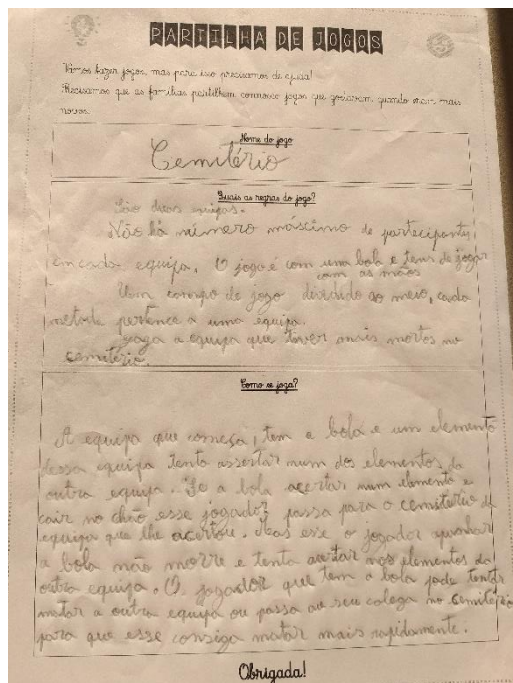 PARTILHA DE JOGOS
Vamos fazer jogos, mas para isso precisamos de ajuda!
Precisamos que as famílias partilhem connosco jogos que gostavam quando eram mais
novos.
Nome do jogo
Cemitério
Quais as regras do jogo?
São duas equipas.
Não há número máscimo de partecipantes
em cada equipa. O jogo é com uma bola e tens de jogar
com as mãos
Um campo de jogo dividido ao meio, cada
metade pertence a uma equipa.
a equipa que tiver mais mortos no
cemitério.
Como se joga?
A equipa que começa, tem a bola e um elemento
dessa equipa tenta assertar num dos elementos da
outra equipa. Se a bola acertar num elemento e
cair no chão esse jogador passa para o cemiterio da
equipa que lhe acertou. Mas esse o jogador apanhar
a bola não morre e tenta acertar nos elementos da
outra equipa. O jogador que tem a bola pode tentar
matar a outra equipa ou passa ao seu colega no cemitério
para que esse consiga matar mais rapidamente.
Obrigada!